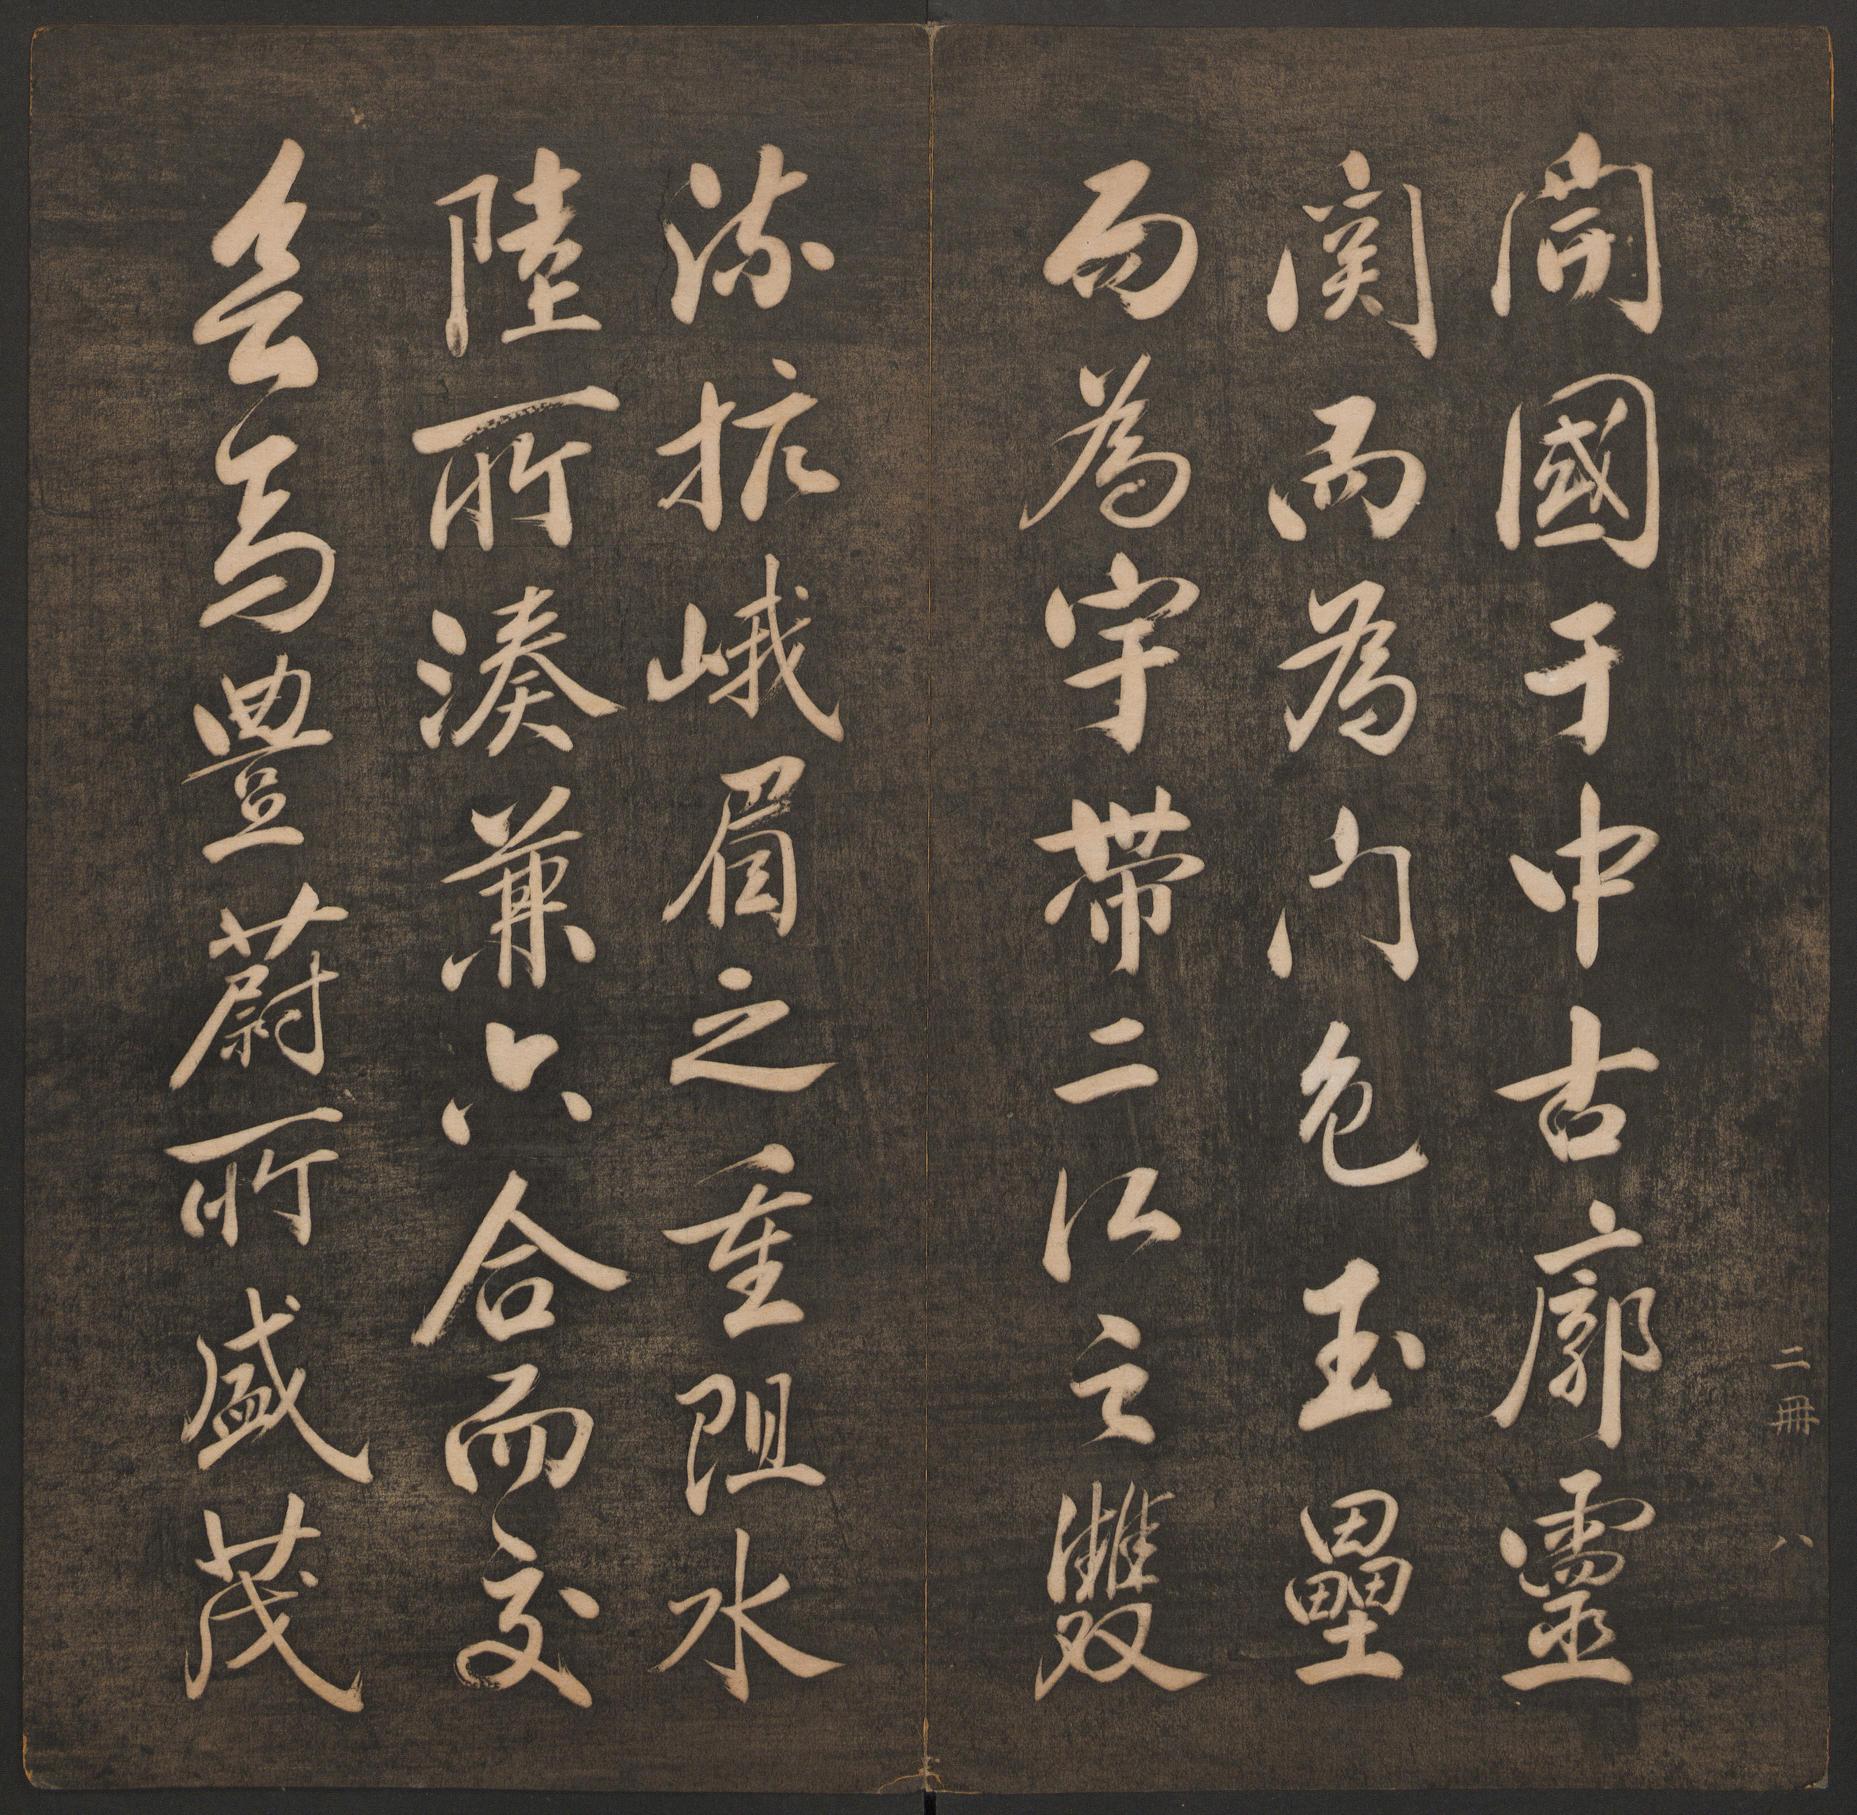 二冊 八
開國于中古廓靈
関而為門包玉壘
而為宇帶二江之雙
流抗峨眉之重阻水
陸所湊兼六合而交
會焉豊蔚所盛茂